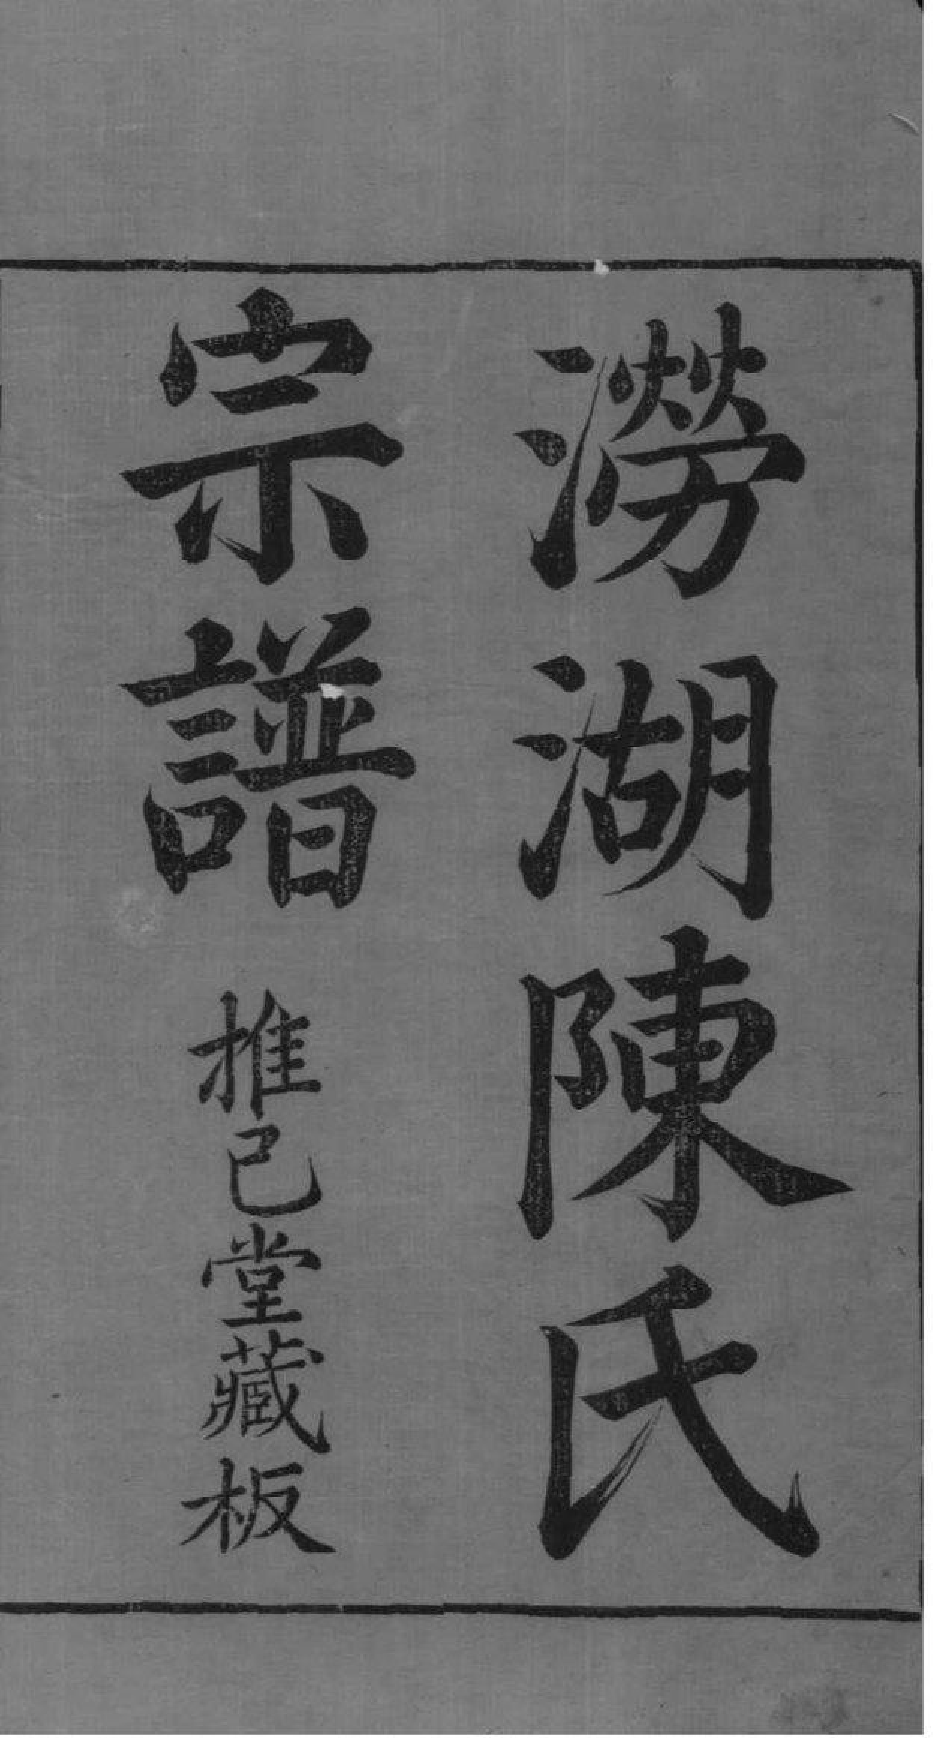 澇湖陳氏
宗譜
推己堂藏板